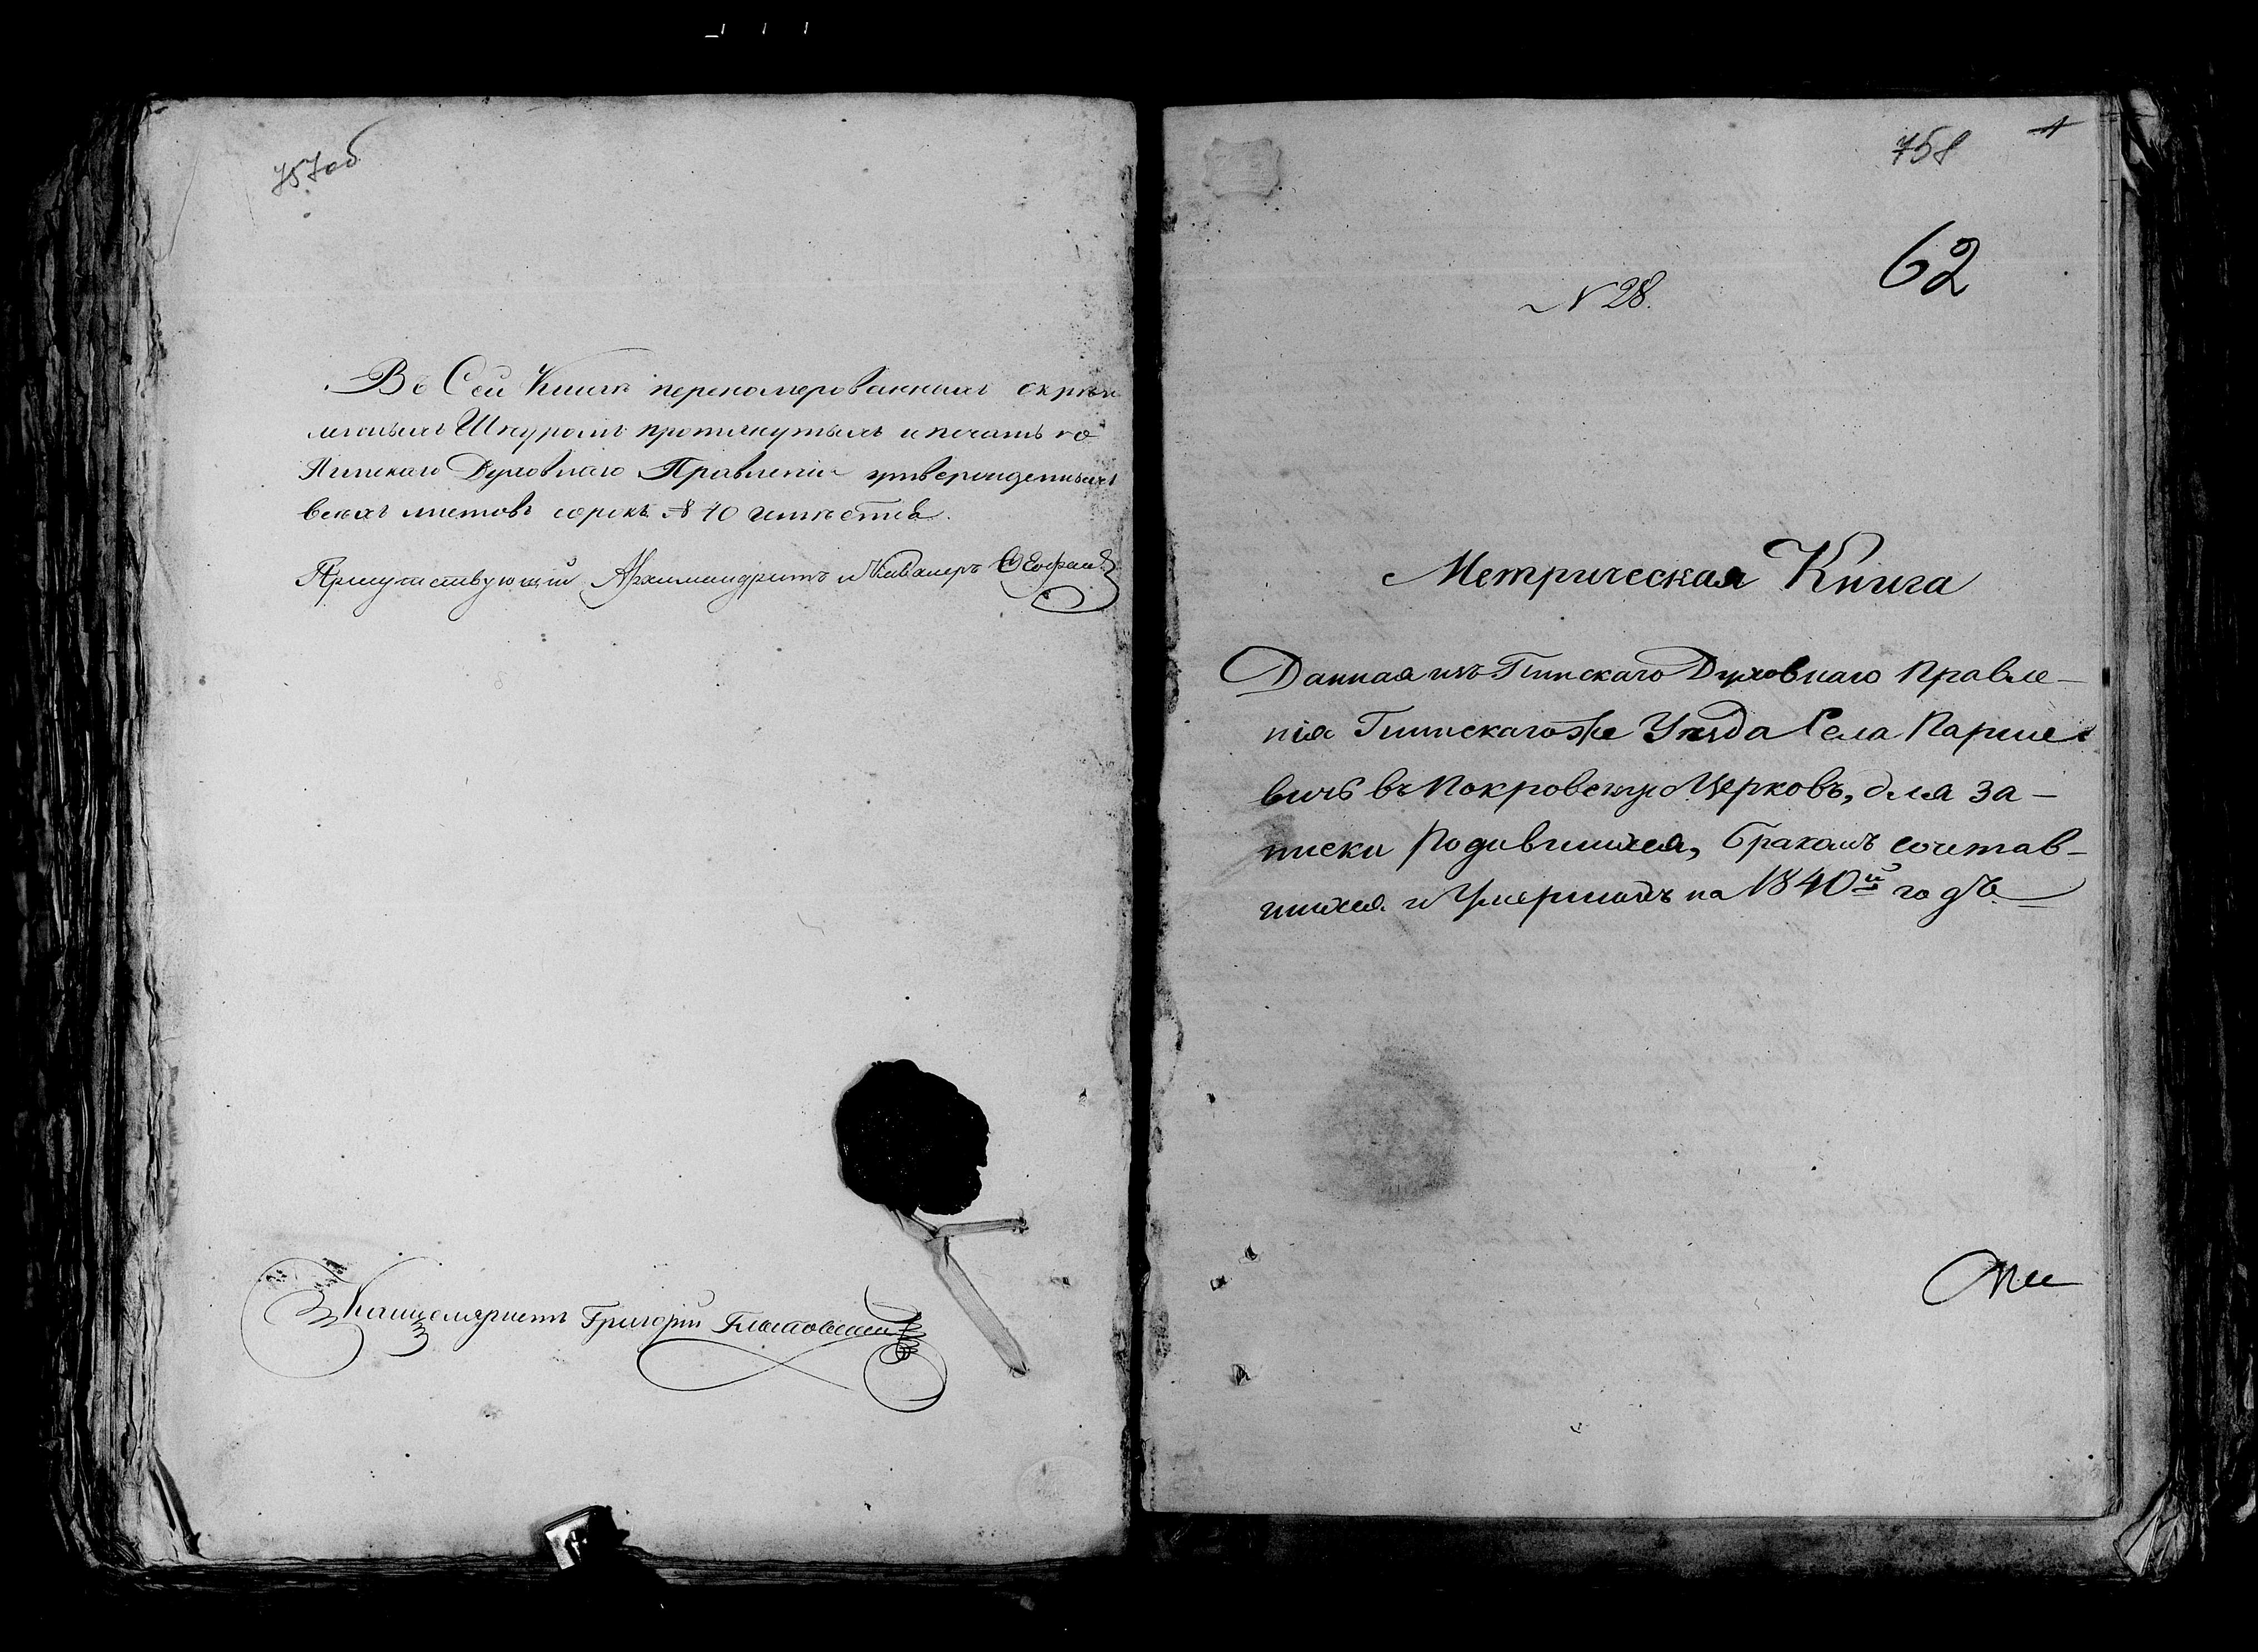 757об
Въ Сей Книгѣ переномерованныхъ скрѣп
леныхъ Шнуромъ протянутыхъ и печатью
Пинскаго Духовнаго Правленія утвержденныхъ
всѣхъ листовъ сорокъ № 40
Присутствующій Архимандритъ и Кавалеръ Ѳеофанъ
Канцеляристъ Григорій
758
62
N 28.
Метрическая Книга
Данная изъ Пинскаго Духовнаго Правле-
нія Пинскагоже Уезда Села Парше
вичь въ Покровскую Церковъ, для за-
писки Родившихся, бракомъ сочетав-
шихся и Умершихъ на 1840й годъ